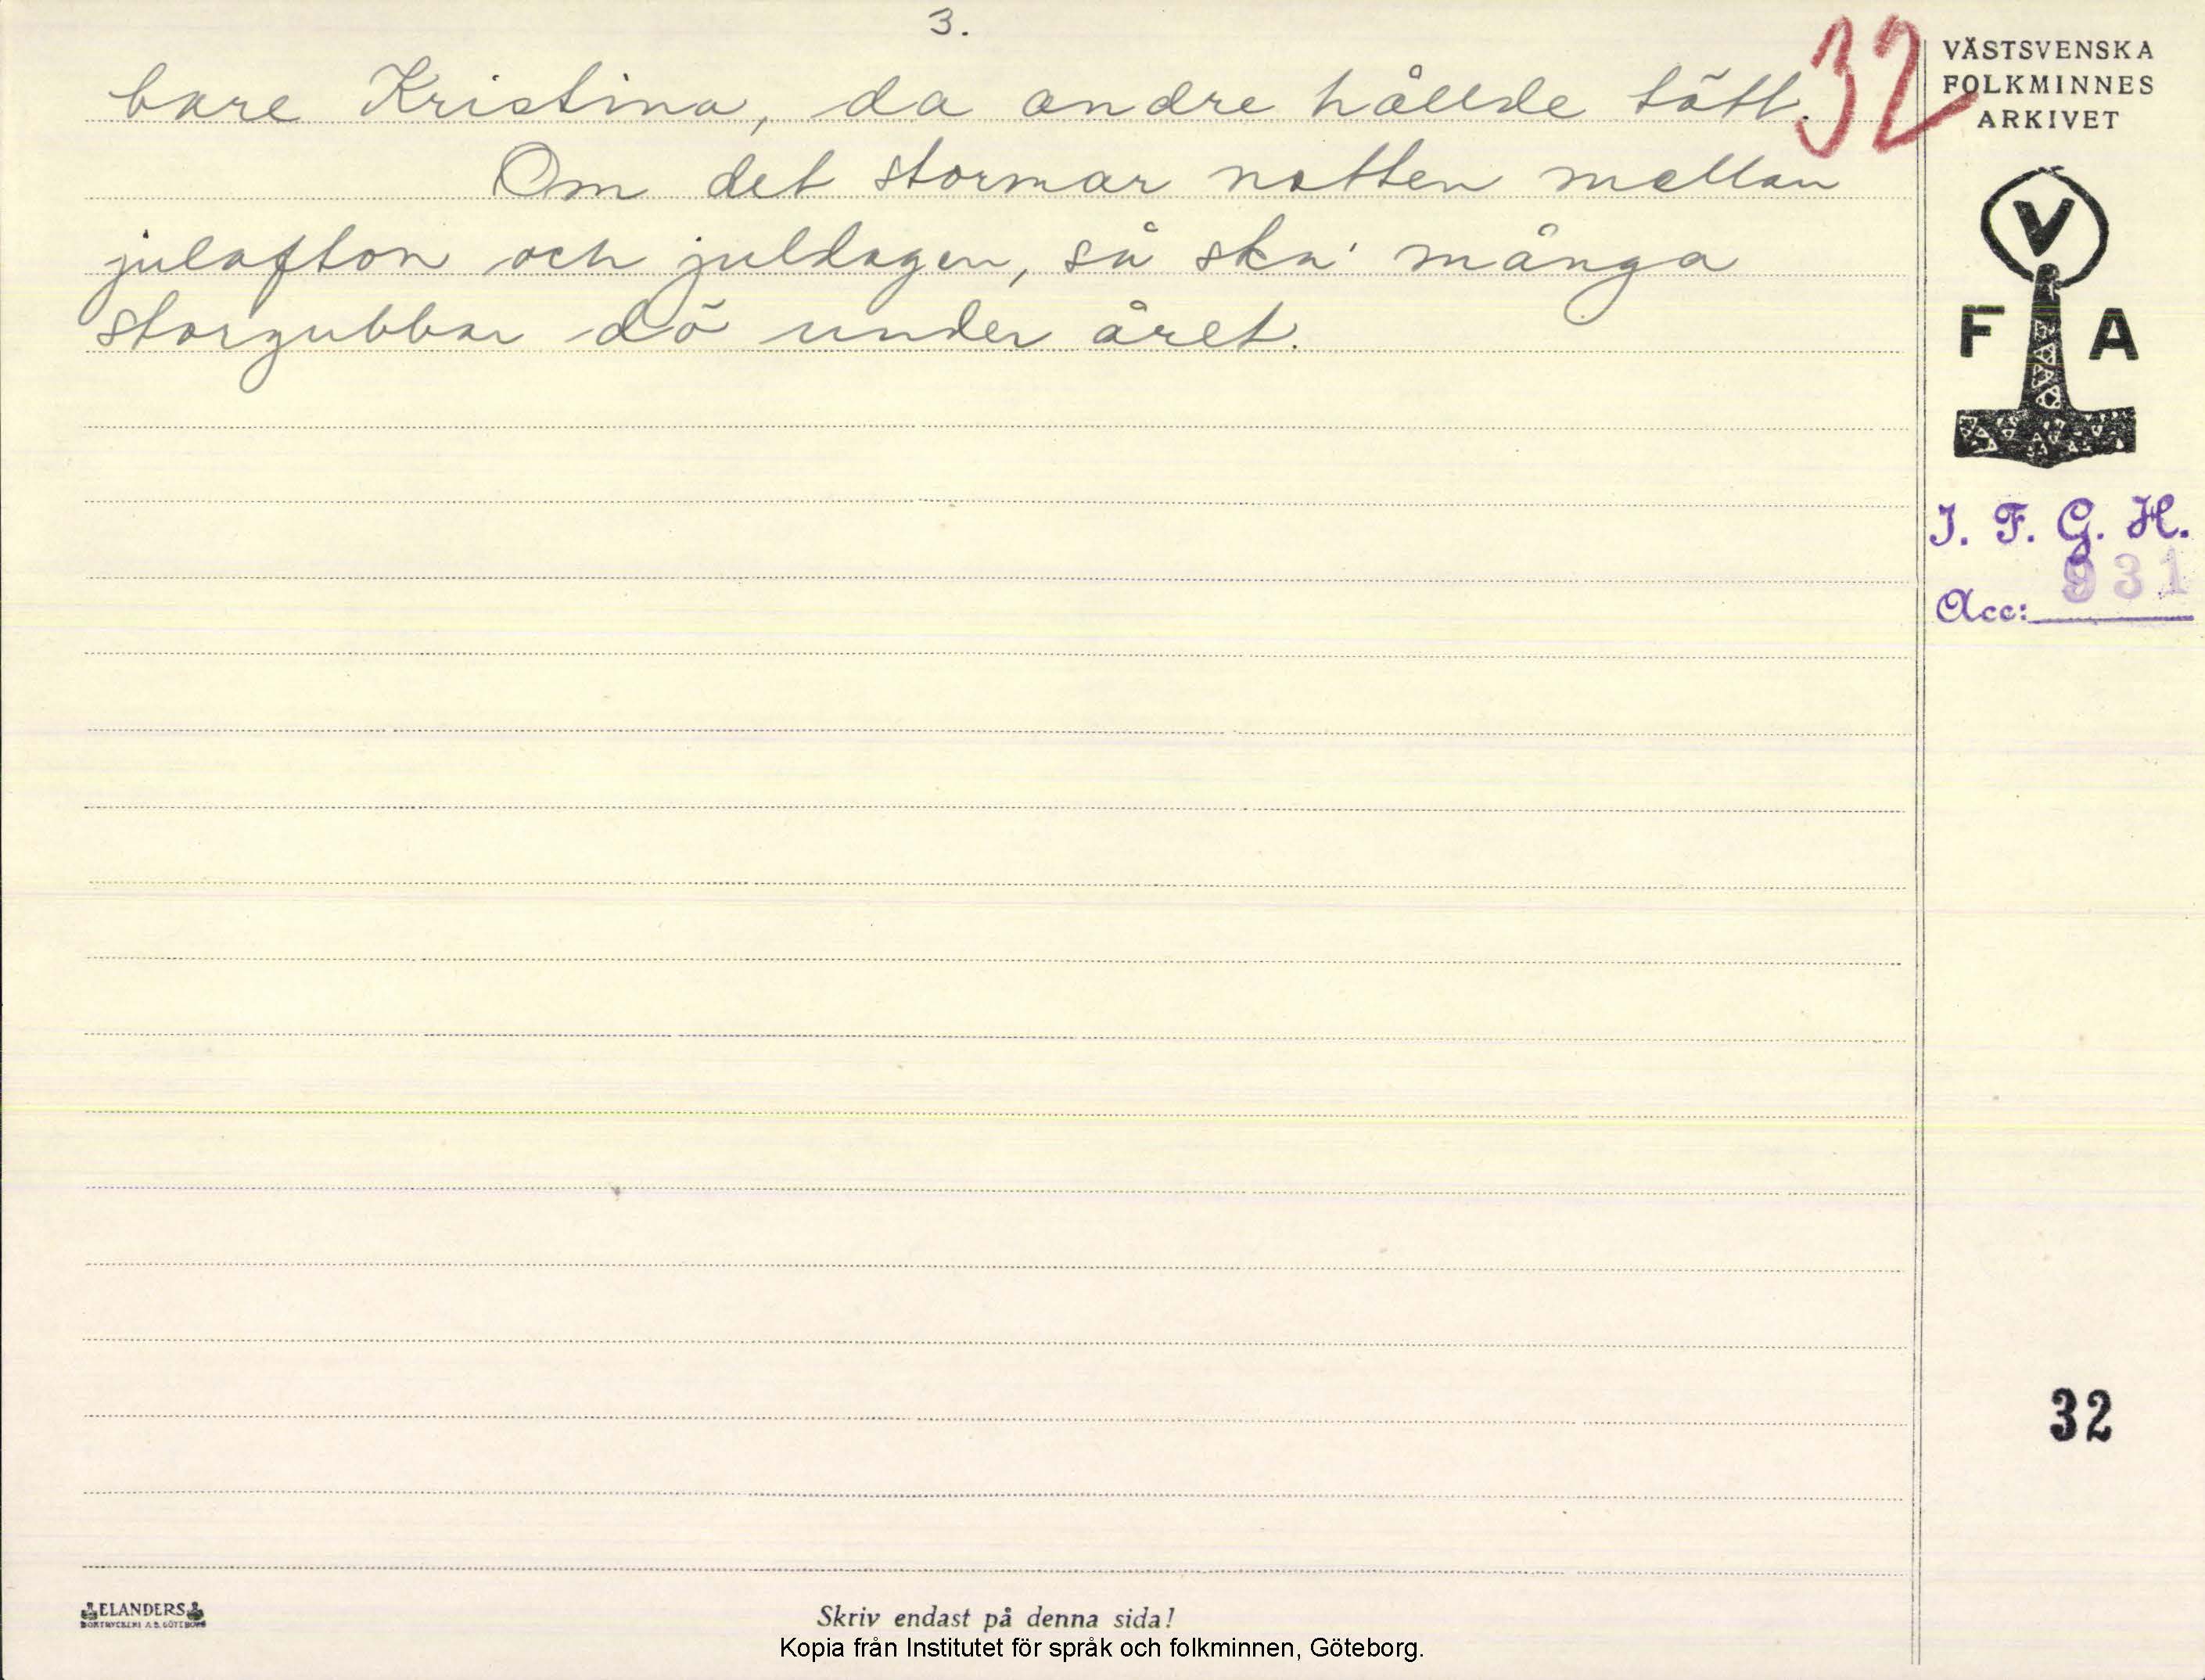 3.
32
bare Kristina, da andre hållde tätt.
Om det stormar natten mellan
julafton och juldagen, så ska' många
storgubbar dö under året.
VÄSTSVENSKA
FOLKMINNES
ARKIVET
V
F A
I. F. G. H.
Acc: 931
32
ELANDERS
BOKTRYCKERI A.B. GÖTEBORG
Skriv endast på denna sida!
Kopia från Institutet för språk och folkminnen, Göteborg.